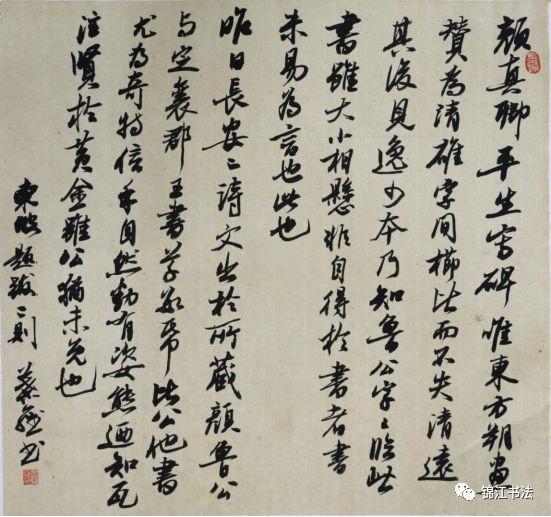 顏真卿平生寫碑惟東方朔畫
贊為清雄字間櫛比而不失清遠
其後見逸少本乃知魯公字〻臨此
書雖大小相懸非自得於書者書
未易為言也此也
昨日長安〻詩文出於所藏顏魯公
与定襄郡王書草數帋比公他書
尤為奇特信手自然動有姿態迺知瓦
注賢於黃金雖公猶未免也
東坡題跋二則 蔡 书
锦江书法